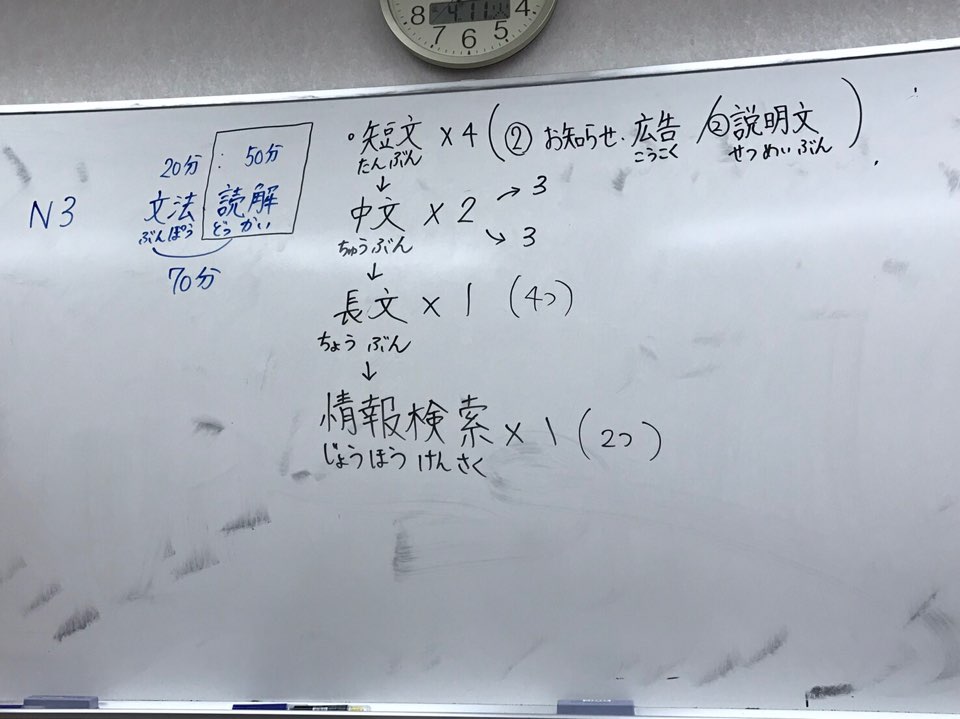 8 4
4.11
7 6 5
20分 : 50分
N3 文法 読解
ぶんぽう どっかい
70分
。短文 × 4 (② お知らせ・広告 / ② 説明文)
たんぶん こうこく せつめいぶん
↓
中文 × 2 → 3
ちゅうぶん → 3
↓
長文 × 1 (4つ)
ちょうぶん
↓
情報検索 × 1 (2つ)
じょうほうけんさく